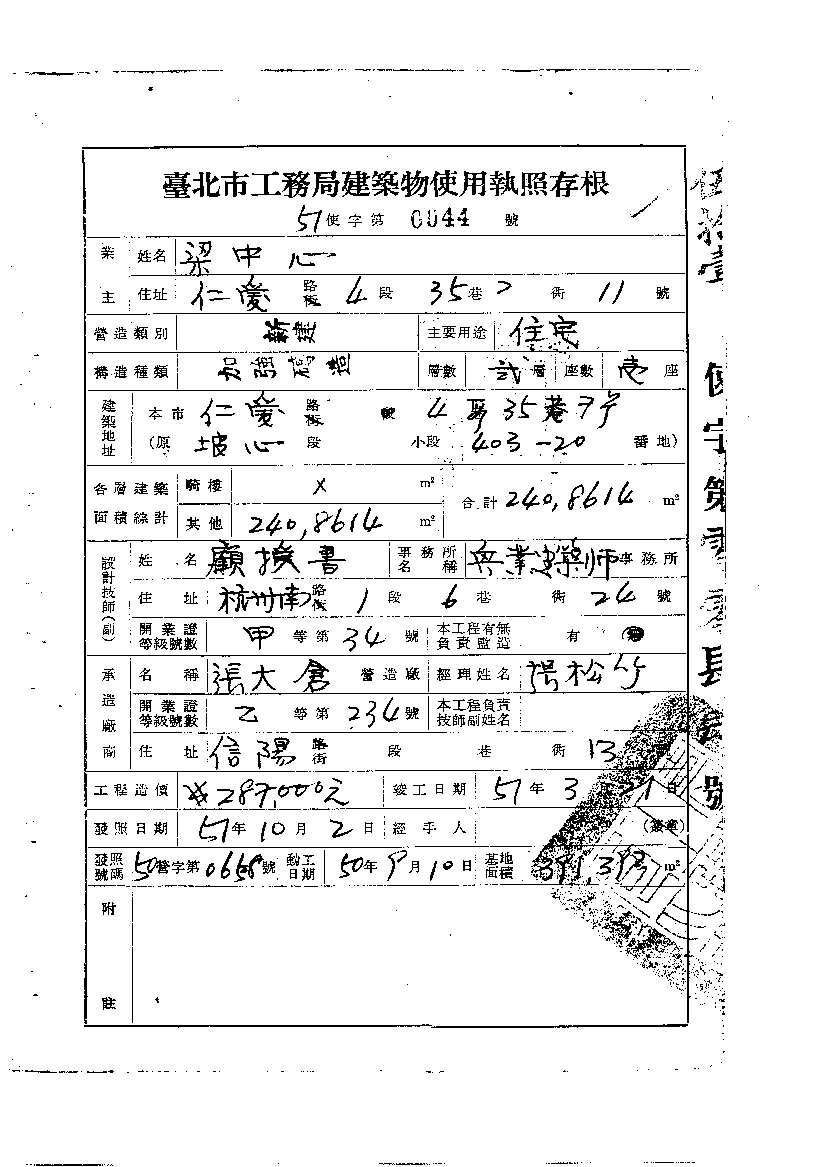 臺北市工務局建築物使用執照存根
51使字第 0044 號
業主 姓名 梁中心
住址 仁愛路街 4段 35巷 街 11 號
營造類別 新建 主要用途 住宅
構造種類 加強磚造 層數 弍層 座數 壱座
建築地址 本市 仁愛路街 號 4 段35巷 号
(原 坡心 段 小段 403-20 番地)
各層建築面積總計 騎樓 × m² 合計 240,8614 m²
其他 240,8614 m²
設計技師(副) 姓名 顧授書 事務所名稱 建築師事務所
住址 杭州南路街 1段 6巷 街 24 號
開業證等級號數 甲等第 34 號 本工程有無負責監造 有
承造廠商 名稱 張大倉 營造廠 經理姓名 張松竹
開業證等級號數 乙等第 234 號 本工程負責技師副姓名
住址 信陽路街 段 巷 街 13
工程造價 287,000元 竣工日期 51年 3 日
發照日期 51年 10月 2日 經手人 (蓋章)
發照號碼 50營字第 號 動工日期 50年 9月 10日 基地面積 m²
附註
伍拾壹 使字第 號